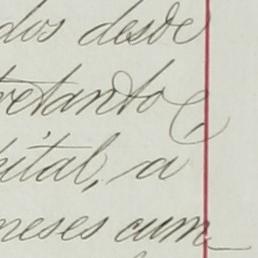 dos desde
tretanto,
pital, a
meses cum-